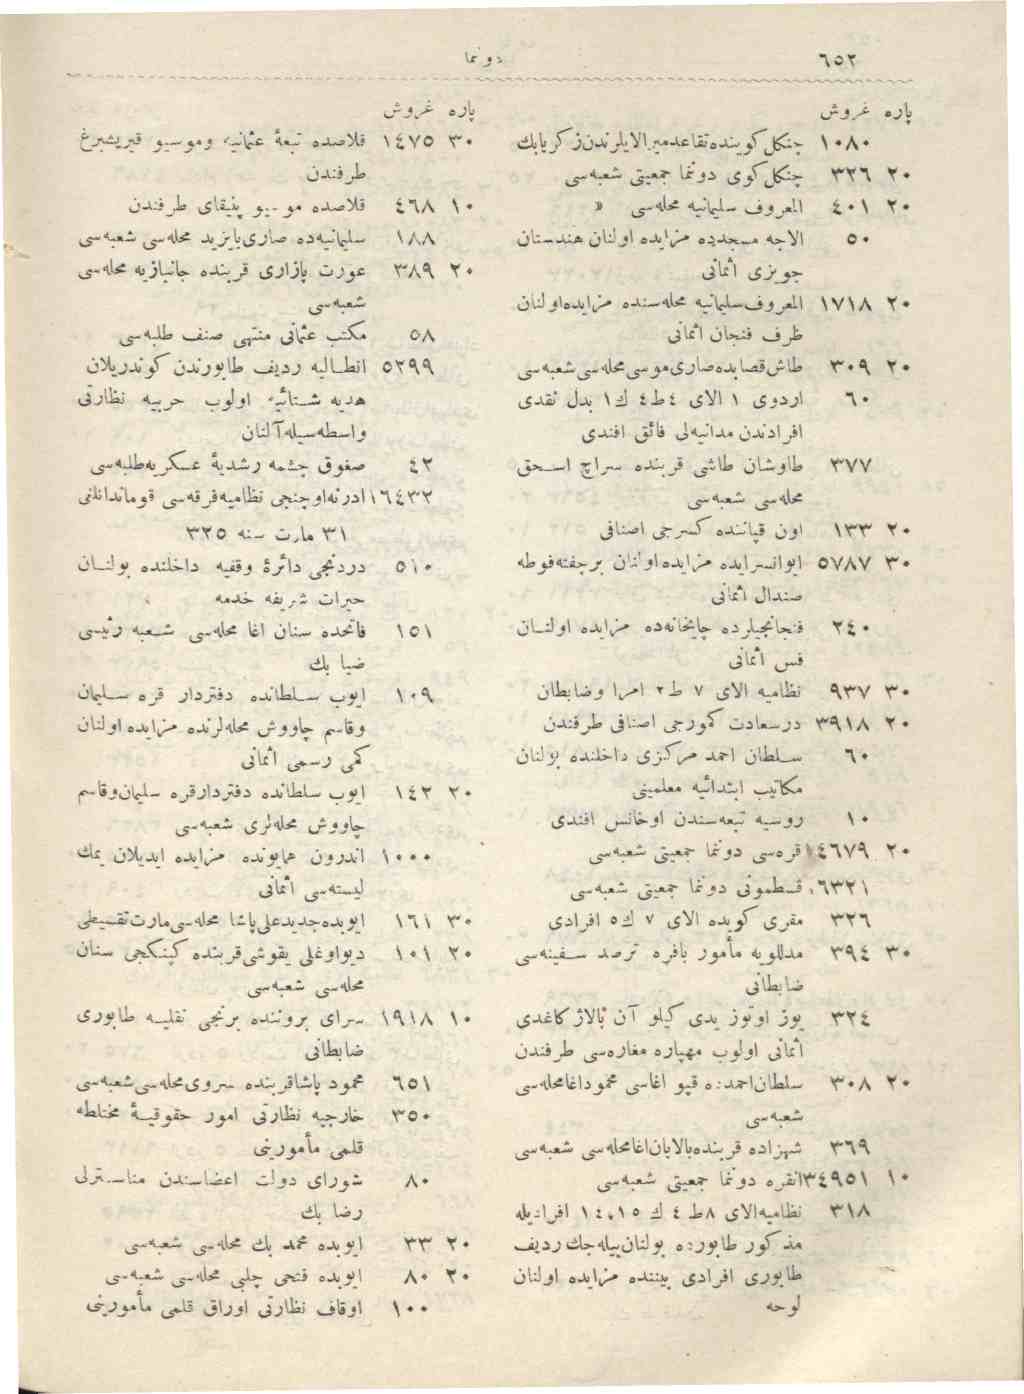 ٦٥٢
دونما
پاره غروش
١٠٨٠ چنكل كوينده تقاعد ميرالايلرندن زكريا بك
٢٠ ٣٢٦ چنكل كوى دونما جمعيتى شعبه‌سى
٢٠ ٤٠١ المعروف سليمانيه محله‌سى »
٥٠ الاجه مسجدده مزايده اولنان هندستان
جويزى اثمانى
٢٠ ١٧١٨ المعروف سليمانيه محله‌سنده مزايده اولنان
ظرف فنجان اثمانى
٢٠ ٣٠٩ طاش قصابده صارى موسى محله‌سى شعبه‌سى
٦٠ اردوى ١ الاى ٤ ط ٤ ك ١ بدل نقدى
افرادندن مدانيه‌لى فائق افندى
٣٧٧ طاوشان طاشى قربنده سراج اسحق
محله‌سى شعبه‌سى
٢٠ ١٣٣ اون قپاننده كسرجى اصنافى
٣٠ ٥٧٨٧ ايوانسرايده مزايده اولنان برچفته فوطه
صندال اثمانى
٢٤٠ فنجانجيلرده چايخانه‌ده مزايده اولنان
فس اثمانى
٣٠ ٩٣٧ نظاميه الاى ٧ ط ٢ امرا وضابطان
٢٠ ٣٩١٨ درسعادت كمورجى اصنافى طرفندن
٦٠ سلطان احمد مركزى داخلنده بولنان
مكاتيب ابتدائيه معلمينى
١٠ روسيه تبعه‌سندن اوخانس افندى
٢٠ ١٤٦٧٩ قره‌سى دونما جمعيتى شعبه‌سى
٦٣٢١ قسطمونى دونما جمعيتى شعبه‌سى
٣٢٦ مقرى كويده الاى ٧ ك ٥ افرادى
٣٠ ٣٩٤ مدللويه مأمور بافره ترصد سفينه‌سى
ضابطانى
٣٢٤ يوز اوتوز يدى كيلو آن بالاژ كاغدى
اثمانى اولوب مهپاره مغازه‌سى طرفندن
٢٠ ٣٠٨ سلطان احمدده قپو اغاسى محمود اغا محله‌سى
شعبه‌سى
٣٦٩ شهزاده قربنده بالابان اغا محله‌سى شعبه‌سى
١٠ ٣٤٩٥١ انقره دونما جمعيتى شعبه‌سى
٣١٨ نظاميه الاى ٨ ط ٤ ك ١٤،١٥ افراديله
مذكور طابورده بولنان بيله‌جك رديف
طابورى افرادى بيننده مزايده اولنان
لوحه
پاره غروش
٣٠ ١٤٧٥ قلاصده تبعۀ عثمانيه وموسيو قبريشبرغ
طرفندن
١٠ ٤٦٨ قلاصده موسيو پنيقاى طرفندن
١٨٨ سليمانيه‌ده صارى بايزيد محله‌سى شعبه‌سى
٢٠ ٣٨٩ عورت پازارى قربنده جانبازيه محله‌سى
شعبه‌سى
٥٨ مكتب عثمانى منتهى صنف طلبه‌سى
٥٢٩٩ انطاليه رديف طابورندن كوندريلان
هديه شتائيه اولوب حربيه نظارتى
واسطه‌سيله آلنان
٤٢ صغوق چشمه رشديۀ عسكريه طلبه‌سى
١٦٤٣٢ ادرنه اوچنجى نظاميه فرقه‌سى قومانداننى
٣١ مارت سنه ٣٢٥
٥١٠ دردنجى دائرۀ وقفيه داخلنده بولنان
خيرات شريفه خدمه
١٥١ فاتحده سنان اغا محله‌سى شعبه رئيسى
ضيا بك
١٠٩ ايوب سلطانده دفتردار قره سليمان
وقاسم چاووش محله‌لرنده مزايده اولنان
كمى رسمى اثمانى
٢٠ ١٤٢ ايوب سلطانده دفتردار قره سليمان وقاسم
چاووش محله‌لرى شعبه‌سى
١٠٠٠ اندرون همايونده مزايده ايديلان يمك
ليسته‌سى اثمانى
٣٠ ١٦١ ايوبده جديد على پاشا محله‌سى مارت تقسيطى
٢٠ ١٠١ ديواوغلى يقوشى قربنده كپنكجى سنان
محله‌سى شعبه‌سى
١٠ ١٩١٨ سراى بروننده برنجى نقليه طابورى
ضابطانى
٦٥١ محمود پاشا قربنده سروى محله‌سى شعبه‌سى
٣٥٠ خارجيه نظارتى امور حقوقيۀ مختلطه
قلمى مأمورينى
٨٠ شوراى دولت اعضاسندن مناسترلى
رضا بك
٢٠ ٣٣ ايوبده محمد بك محله‌سى شعبه‌سى
٢٠ ٨٠ ايوبده فتحى چلبى محله‌سى شعبه‌سى
١٠٠ اوقاف نظارتى اوراق قلمى مأمورينى